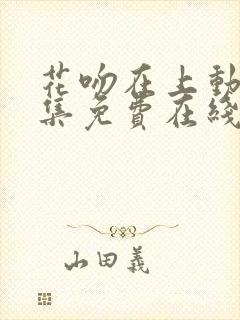 花吻在上動
集免費在綫
山田義